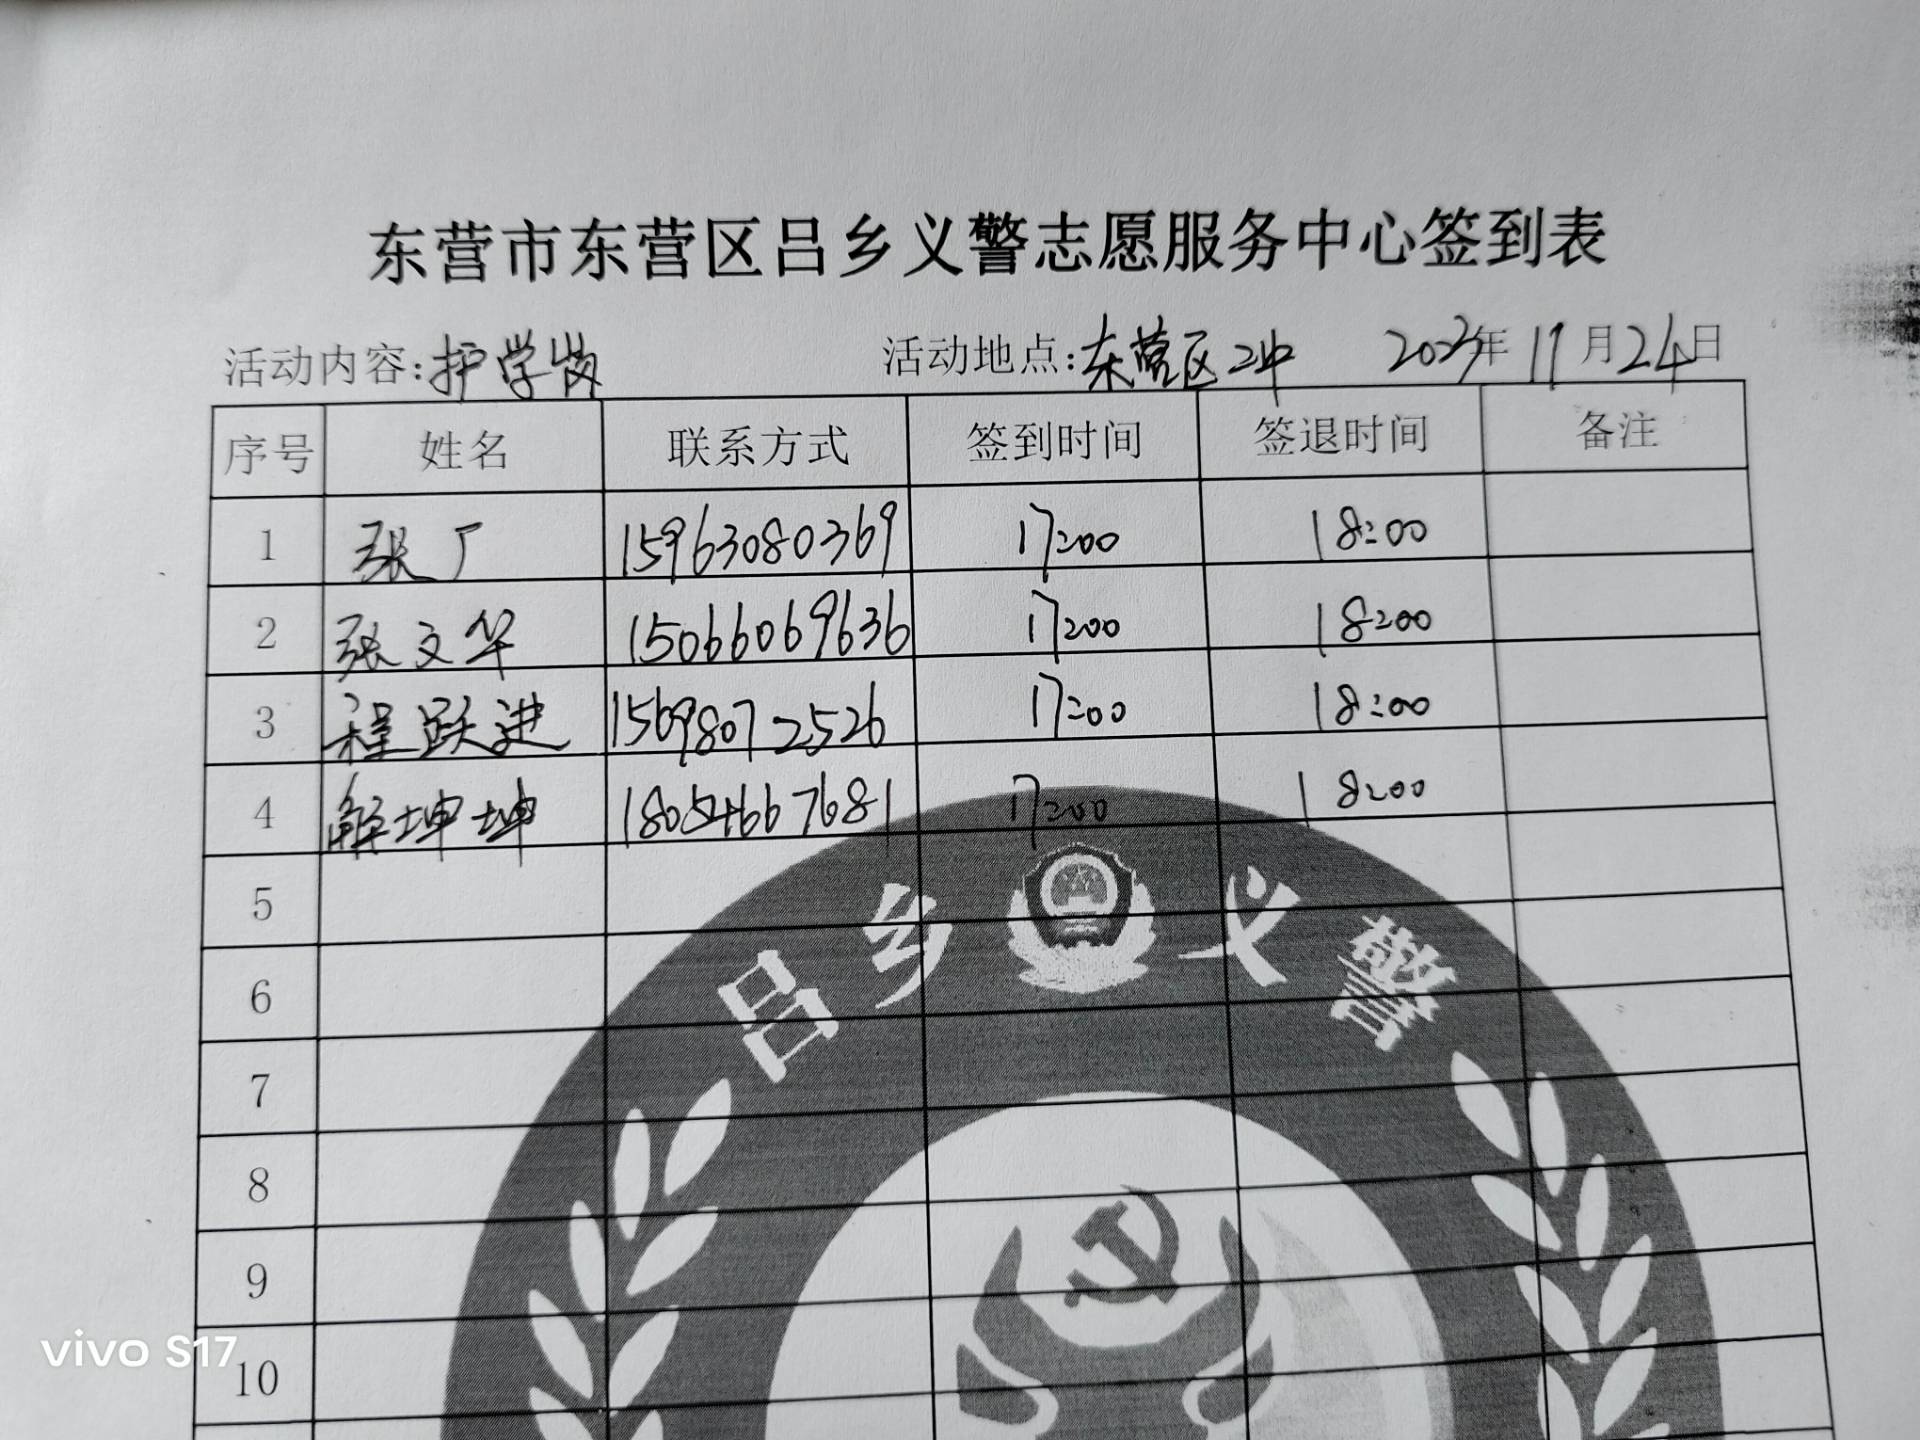 东营市东营区吕乡义警志愿服务中心签到表
活动内容:护学岗 活动地点:东营区二中 2023年11月24日
序号 姓名 联系方式 签到时间 签退时间 备注
1 张广 15963080369 17:00 18:00
2 张文华 15066069636 17:00 18:00
3 程跃进 15698072526 17:00 18:00
4 解坤坤 18054667681 17:00 18:00
5
吕乡义警
6
7
8
9
10
vivo S17